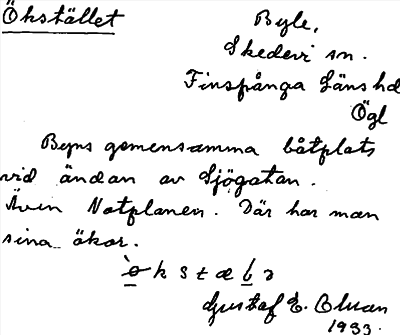 Ökstället
Byle,
Skedevi sn.
Finspånga Läns hd
Ögl
Byns gemensamma båtplats
vid ändan av Sjögatan.
Även Notplanen. Där har man
sina ökor.
Gustaf E.
1933.